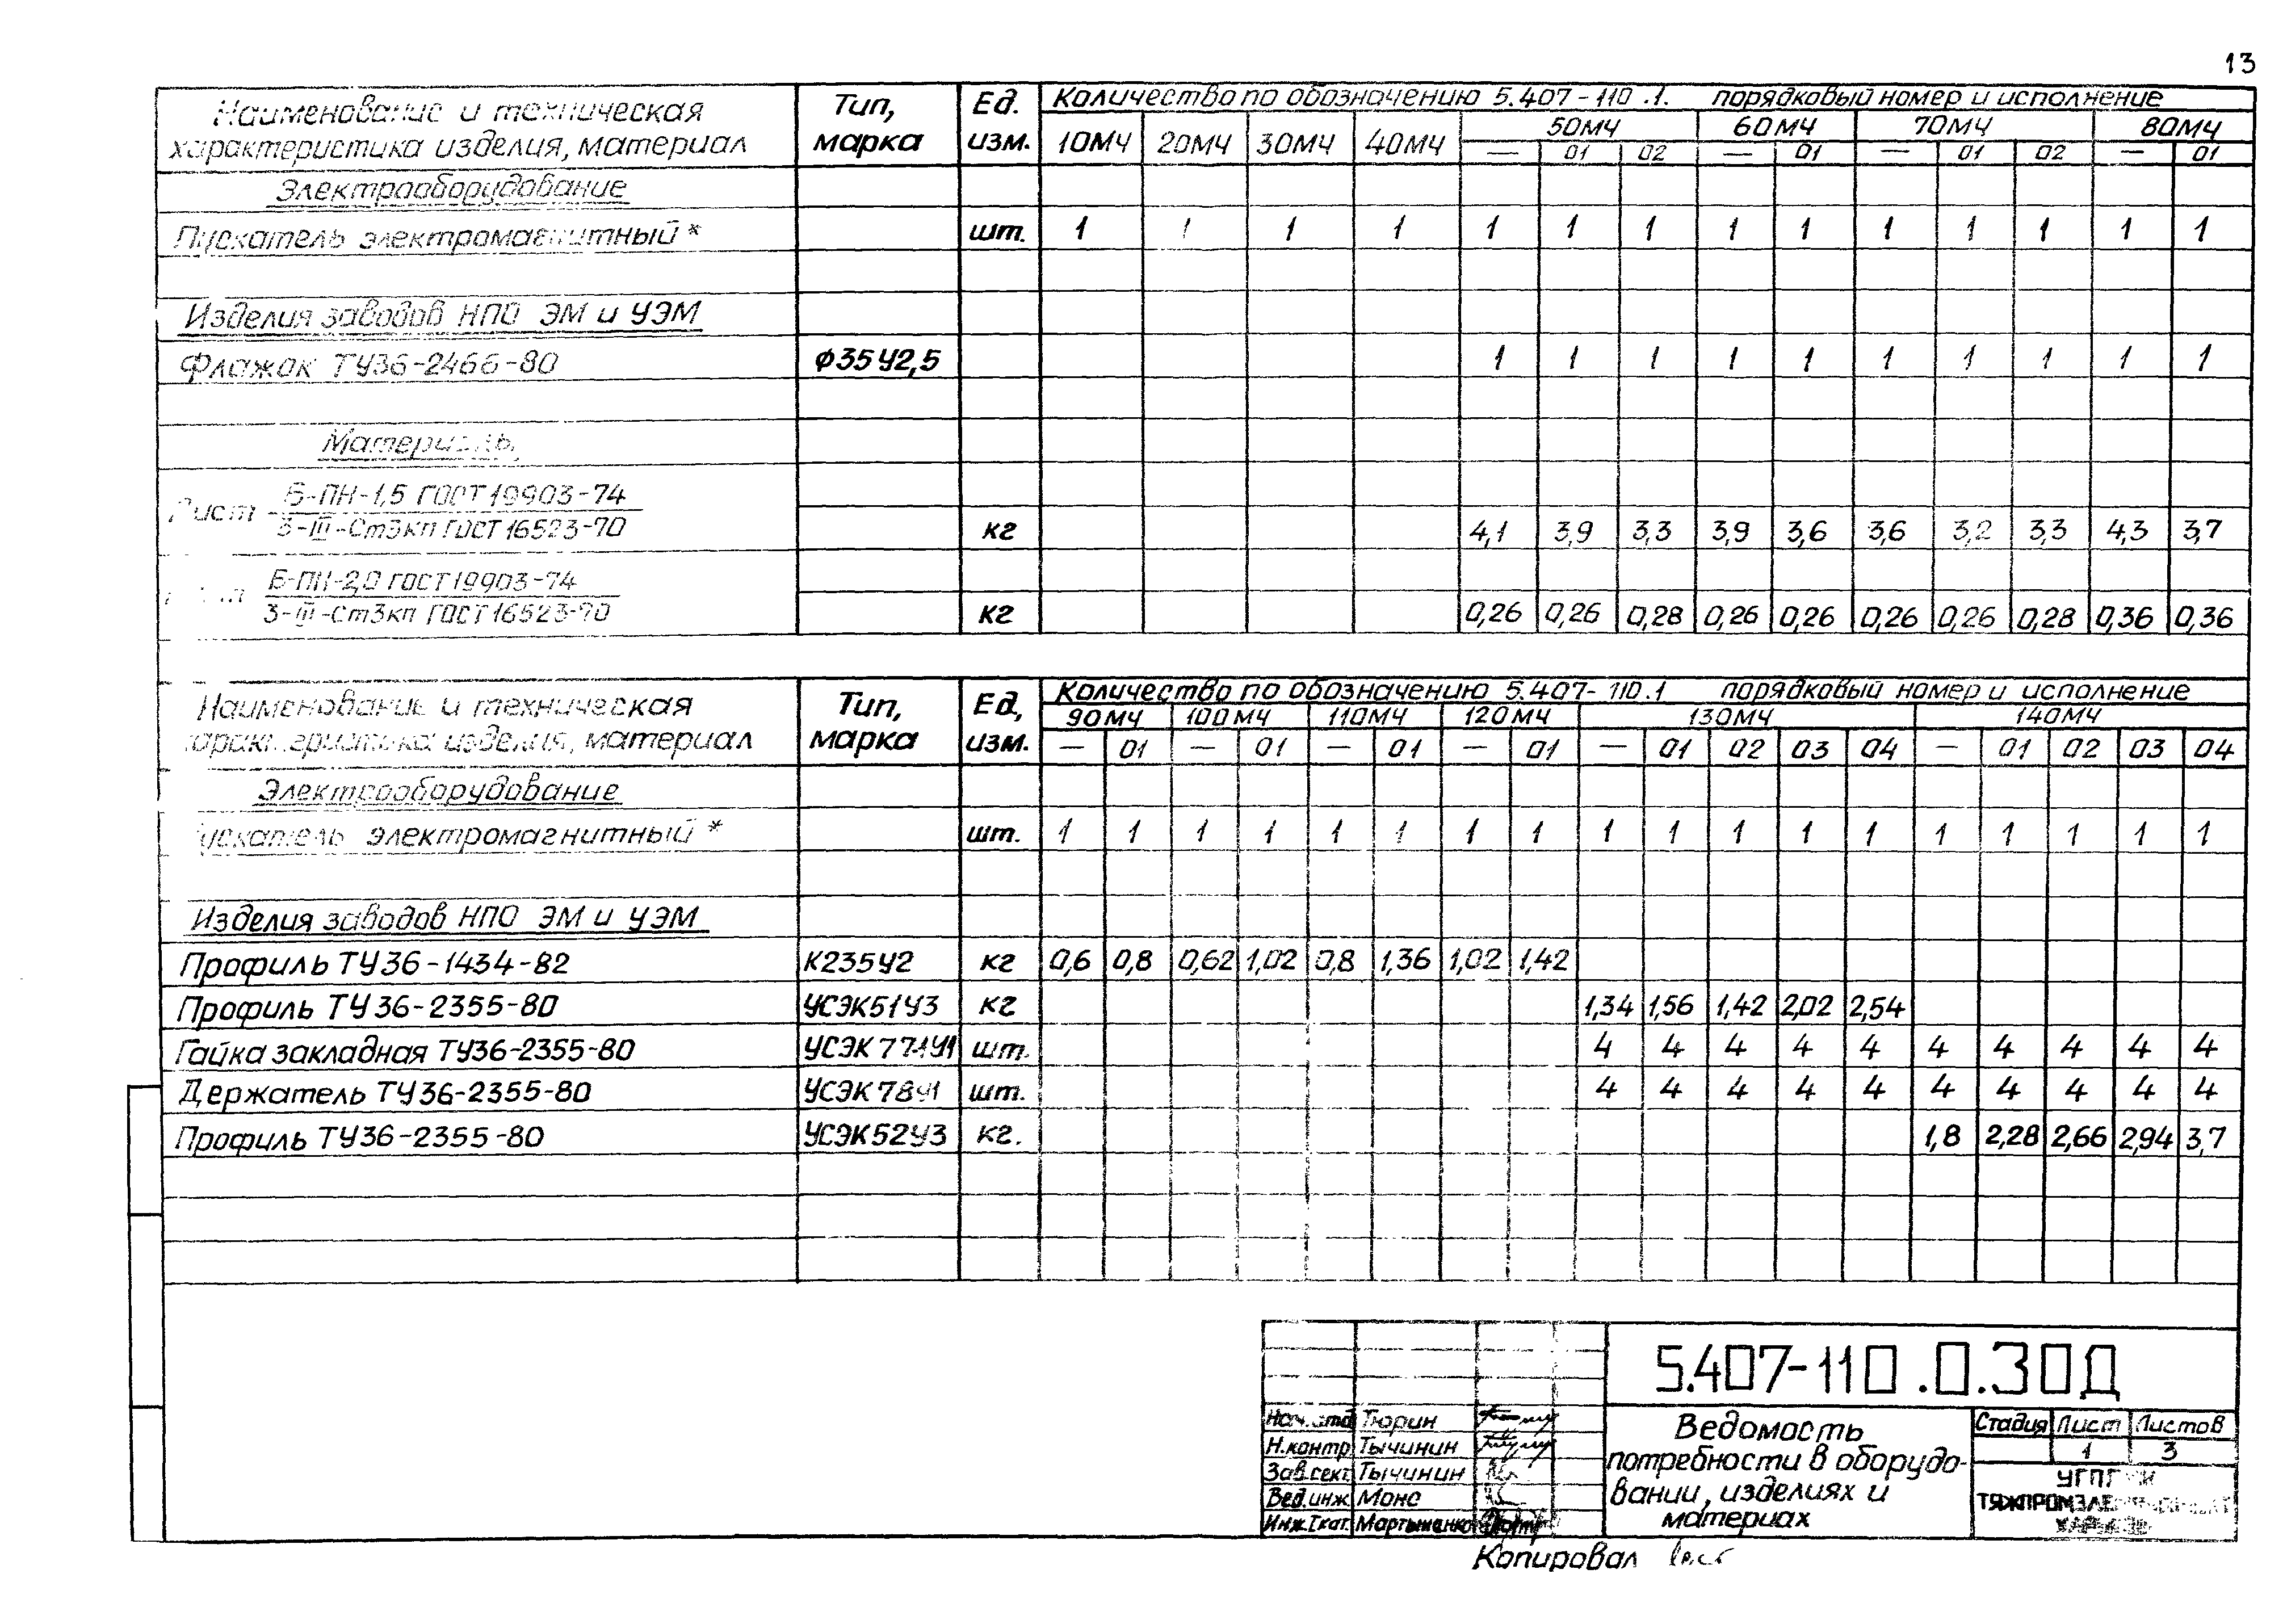 13
Наименование и техническая характеристика изделия, материал | Тип, марка | Ед. изм. | Количество по обозначению 5.407-110.1. порядковый номер и исполнение
10МЧ | 20МЧ | 30МЧ | 40МЧ | 50МЧ | 60МЧ | 70МЧ | 80МЧ
— | 01 | 02 | — | 01 | — | 01 | 02 | — | 01
Электрооборудование
Пускатель электромагнитный* | шт. | 1 | 1 | 1 | 1 | 1 | 1 | 1 | 1 | 1 | 1 | 1 | 1 | 1 | 1
Изделия заводов НПО ЭМ и УЭМ
Флажок ТУ36-2466-80 | Ф35У2,5 | 1 | 1 | 1 | 1 | 1 | 1 | 1 | 1 | 1 | 1
Материалы
Лист Б-ПН-1,5 ГОСТ 19903-74
3-III-Ст3кп ГОСТ 16523-70 | кг | 4,1 | 3,9 | 3,3 | 3,9 | 3,6 | 3,6 | 3,2 | 3,3 | 4,3 | 3,7
Б-ПН-2,0 ГОСТ 19903-74
3-III-Ст3кп ГОСТ 16523-70 | кг | 0,26 | 0,26 | 0,28 | 0,26 | 0,26 | 0,26 | 0,26 | 0,28 | 0,36 | 0,36
Наименование и техническая характеристика изделия, материал | Тип, марка | Ед, изм. | Количество по обозначению 5.407-110.1 порядковый номер и исполнение
90МЧ | 100МЧ | 110МЧ | 120МЧ | 130МЧ | 140МЧ
— | 01 | — | 01 | — | 01 | — | 01 | — | 01 | 02 | 03 | 04 | — | 01 | 02 | 03 | 04
Электрооборудование
Пускатель электромагнитный* | шт. | 1 | 1 | 1 | 1 | 1 | 1 | 1 | 1 | 1 | 1 | 1 | 1 | 1 | 1 | 1 | 1 | 1 | 1
Изделия заводов НПО ЭМ и УЭМ
Профиль ТУ36-1434-82 | К235У2 | кг | 0,6 | 0,8 | 0,62 | 1,02 | 0,8 | 1,36 | 1,02 | 1,42
Профиль ТУ36-2355-80 | УСЭК51У3 | кг | 1,34 | 1,56 | 1,42 | 2,02 | 2,54
Гайка закладная ТУ36-2355-80 | шт. | 4 | 4 | 4 | 4 | 4 | 4 | 4 | 4 | 4 | 4
Держатель ТУ36-2355-80 | УСЭК78У1 | шт. | 4 | 4 | 4 | 4 | 4 | 4 | 4 | 4 | 4 | 4
Профиль ТУ36-2355-80 | УСЭК52У3 | кг. | 1,8 | 2,28 | 2,66 | 2,94 | 3,7
5.407-110.0.30Д
Нач.отд Тюрин
Н.контр Тычинин
Зав.сект. Тычинин
Вед.инж Монс
Инж.Iкат. Мартыненко
Ведомость
потребности в оборудо-
вании, изделиях и
материах
Стадия | Лист | Листов
1 | 3
Копировал